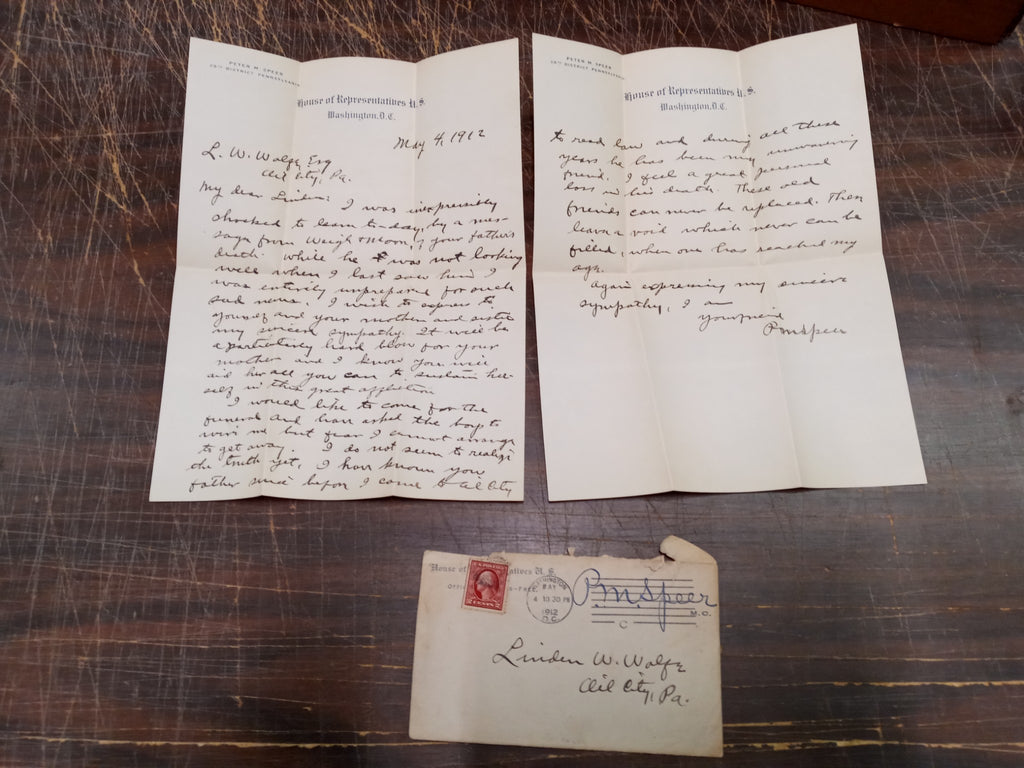 PETER M. SPEER
28TH DISTRICT PENNSYLVANIA
House of Representatives U.S.
Washington, D.C.
May 4, 1912
L. W. Wolfe, Esq
Oil City, Pa.
My dear Linden: I was inexpressibly
shocked to learn to-day, by a mes-
sage from Weigh & Moon, of your father's
death. While he was not looking
well when I last saw him I
was entirely unprepared for such
sad news. I wish to express to
yourself and your mother and sister
my sincere sympathy. It will be
a particularly hard blow for your
mother and I know you will
aid her all you can to sustain her-
self in this great affliction
I would like to come for the
funeral and have asked the boys to
wire me but fear I cannot arrange
to get away. I do not seem to realize
the truth yet. I have known your
father since before I came to Oil City
PETER M. SPEER
28TH DISTRICT PENNSYLVANIA
House of Representatives U.S.
Washington, D.C.
to read law and during all these
years he has been my unwavering
friend. I feel a great personal
loss in his death. These old
friends can never be replaced. They
leave a void which never can be
filled, when one has reached my
age.
Again expressing my sincere
sympathy, I am
your friend
P M Speer
House of atives U.S.
WASHINGTON
MAY
4 10 30 PM
1912
D.C.
2 CENTS 2
P.M. Speer
M.C.
C
Linden W. Wolfe
Oil City, Pa.